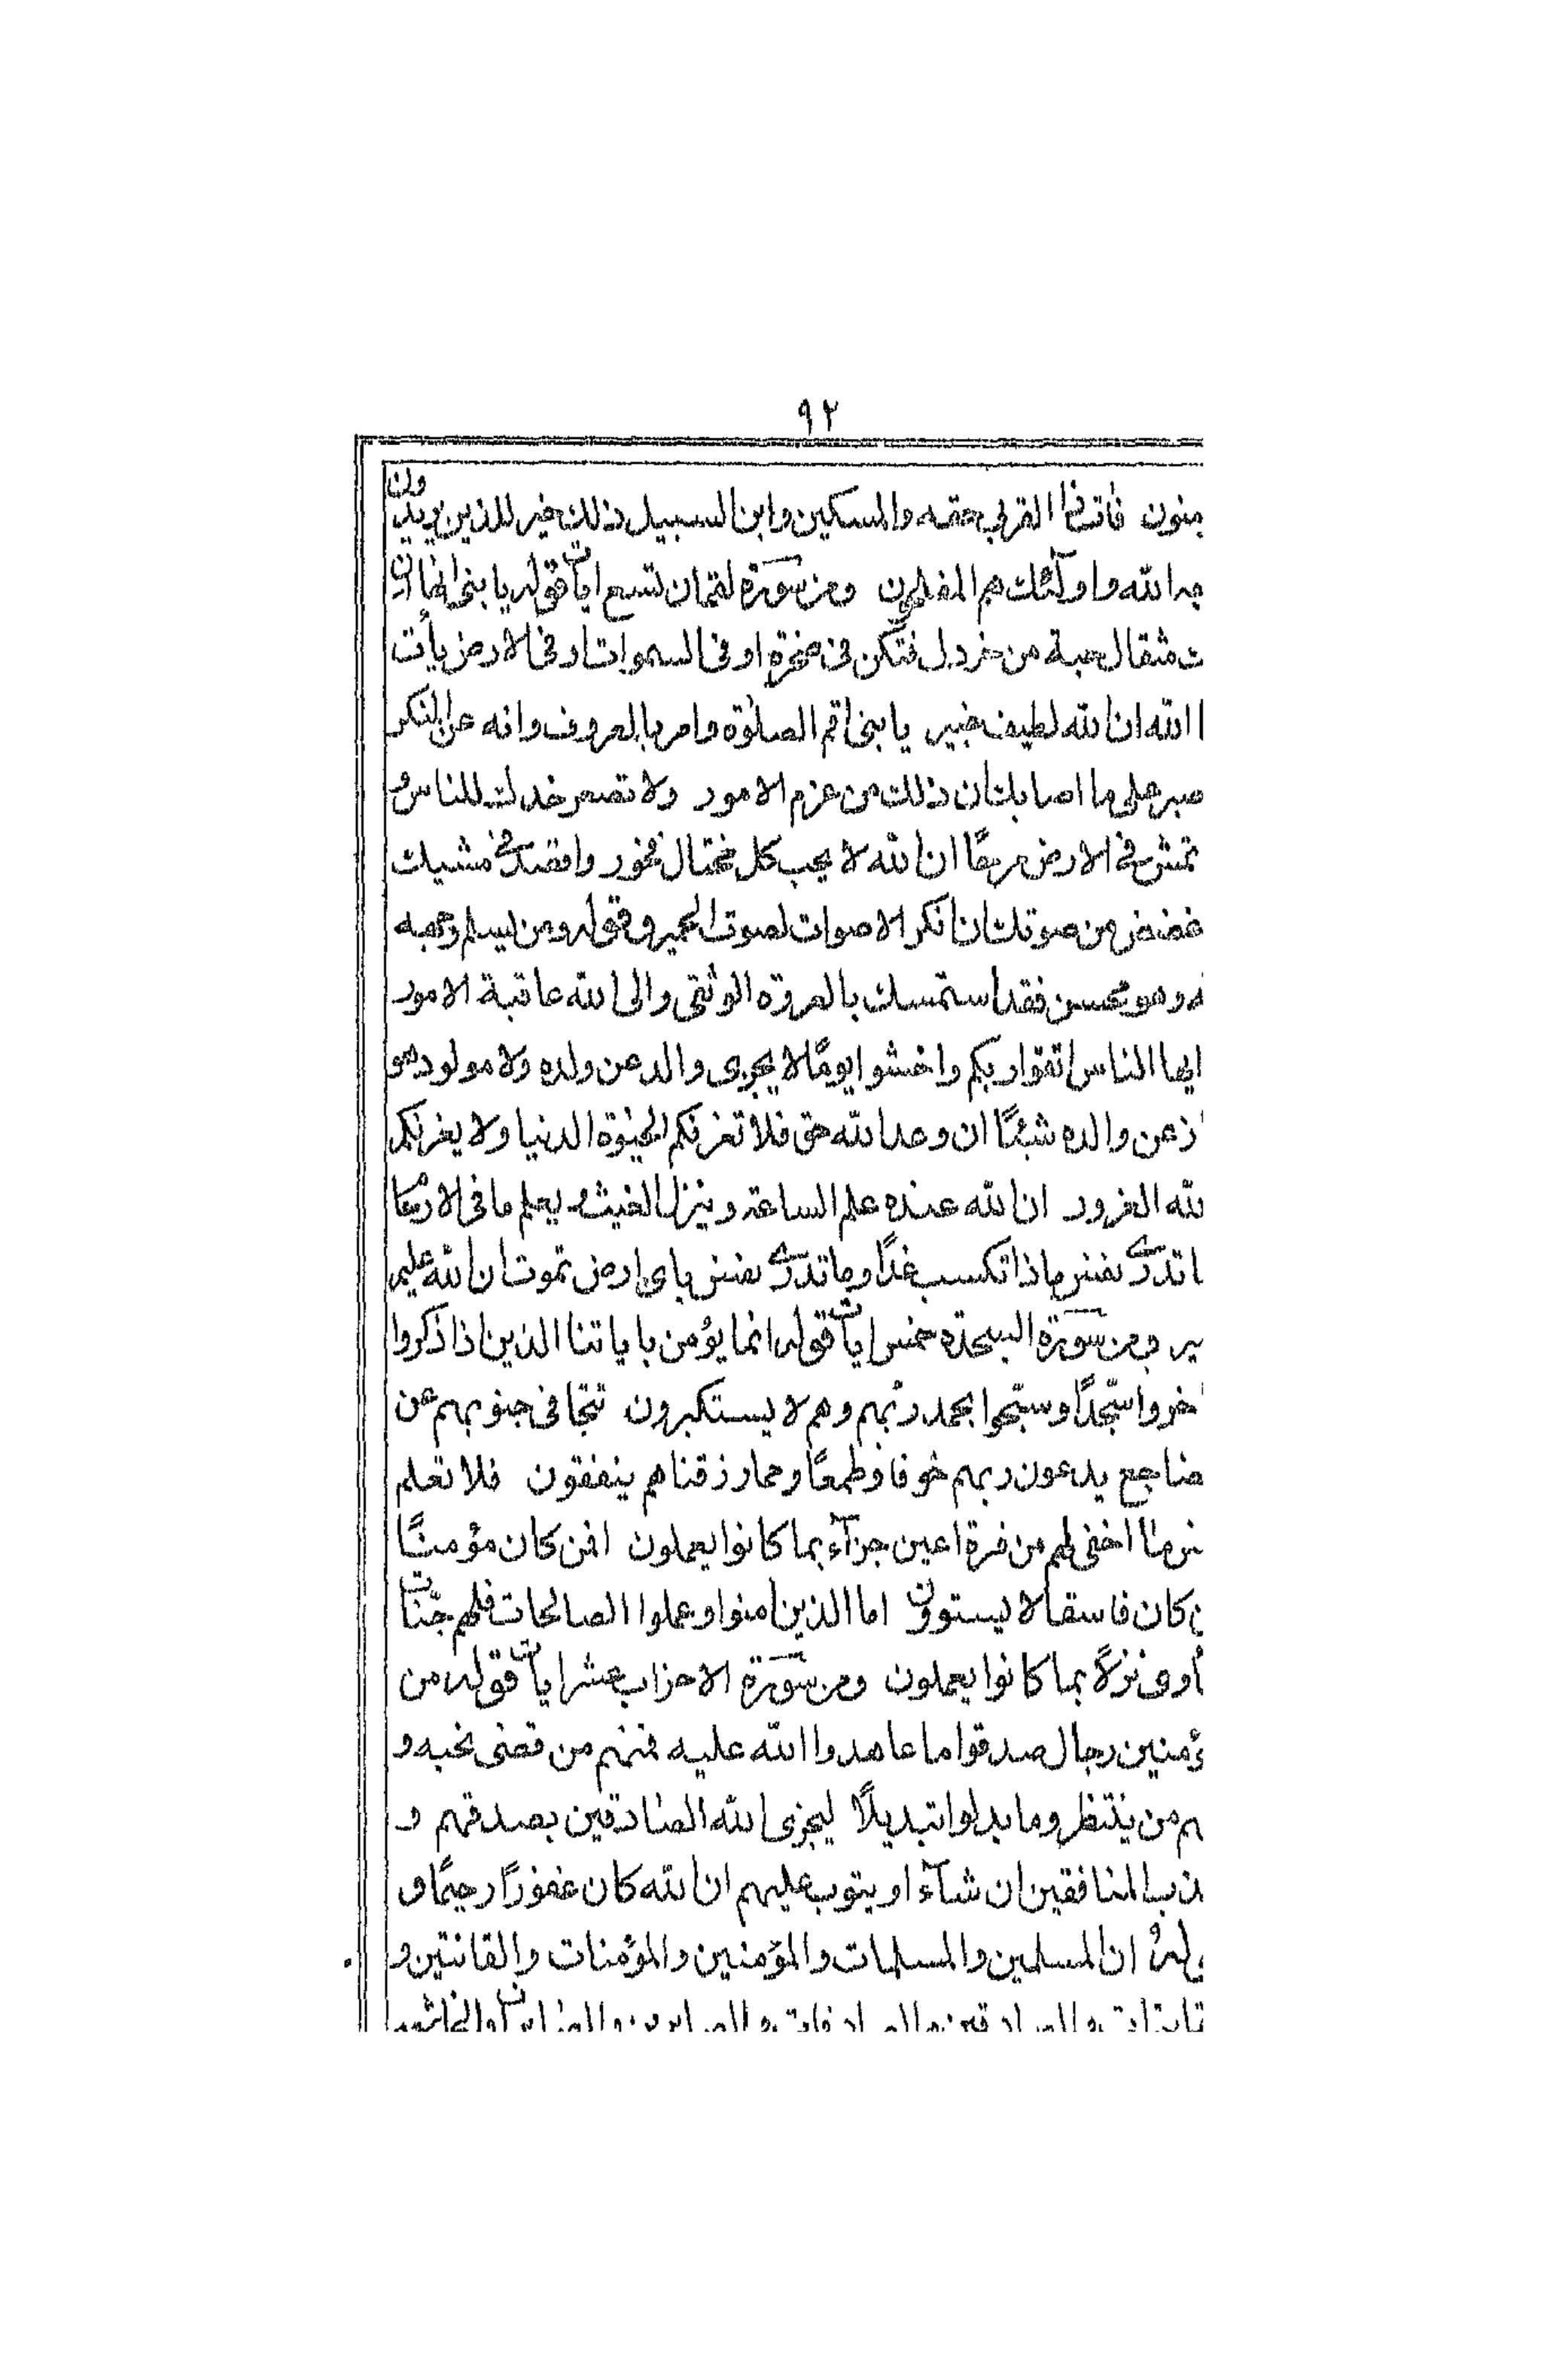 ٩٢
منون فات ذا القربى حقه والمسكين وابن السبيل ذلك خير للذين يريدون
جه الله واولٓئك هم المفلحون ومن سورة لقمان تسع ايات قوله يا بنى انها ان
ت مثقال حبة من خردل فتكن فى صخرة او فى السموات او فى الارض يأت
ا الله ان الله لطيف خبير يا بنى اقم الصلوٰة وامر بالمعروف وانه عن المنكر
صبر على ما اصابك ان ذلك من عزم الامور ولا تصعر خدك للناس و
تمش فى الارض مرحًا ان الله لا يحب كل مختال فخور واقصد فى مشيك
غضض من صوتك ان انكر الاصوات لصوت الحمير وقوله ومن يسلم وجهه
ه وهو محسن فقد استمسك بالعروة الوثقى والى الله عاقبة الامور
ايها الناس اتقوا ربكم واخشوا يومًا لا يجزى والد عن ولده ولا مولود هو
از عن والده شيئًا ان وعد الله حق فلا تغرنكم الحيوة الدنيا ولا يغرنكم
لله الغرور ان الله عنده علم الساعة وينزل الغيث ويعلم ما فى الارحام
ا تدرى نفس ماذا تكسب غدًا وما تدرى نفس باى ارض تموت ان الله عليم
بير ومن سورة السجدة خمس ايات قوله انما يؤمن باياتنا الذين اذا ذكروا
اخروا سجّدًا وسبّحوا بحمد ربّهم وهم لا يستكبرون تتجافى جنوبهم عن
ضاجع يدعون ربهم خوفا وطمعًا ومما رزقناهم ينفقون فلا تعلم
نس ما اخفى لهم من قرة اعين جزآء بما كانوا يعملون افمن كان مؤمنًا
ن كان فاسقا لا يستوون اما الذين امنوا وعملوا الصالحات فلهم جنّات
أوى نزلاً بما كانوا يعملون ومن سورة الاحزاب عشر ايات قوله من
ؤمنين رجال صدقوا ما عاهدوا الله عليه فمنهم من قضى نحبه و
هم من ينتظر وما بدلوا تبديلاً ليجزى الله الصادقين بصدقهم و
ذب المنافقين ان شآء او يتوب عليهم ان الله كان غفورًا رحيمًا و
وله ان المسلمين والمسلمات والمؤمنين والمؤمنات والقانتين و